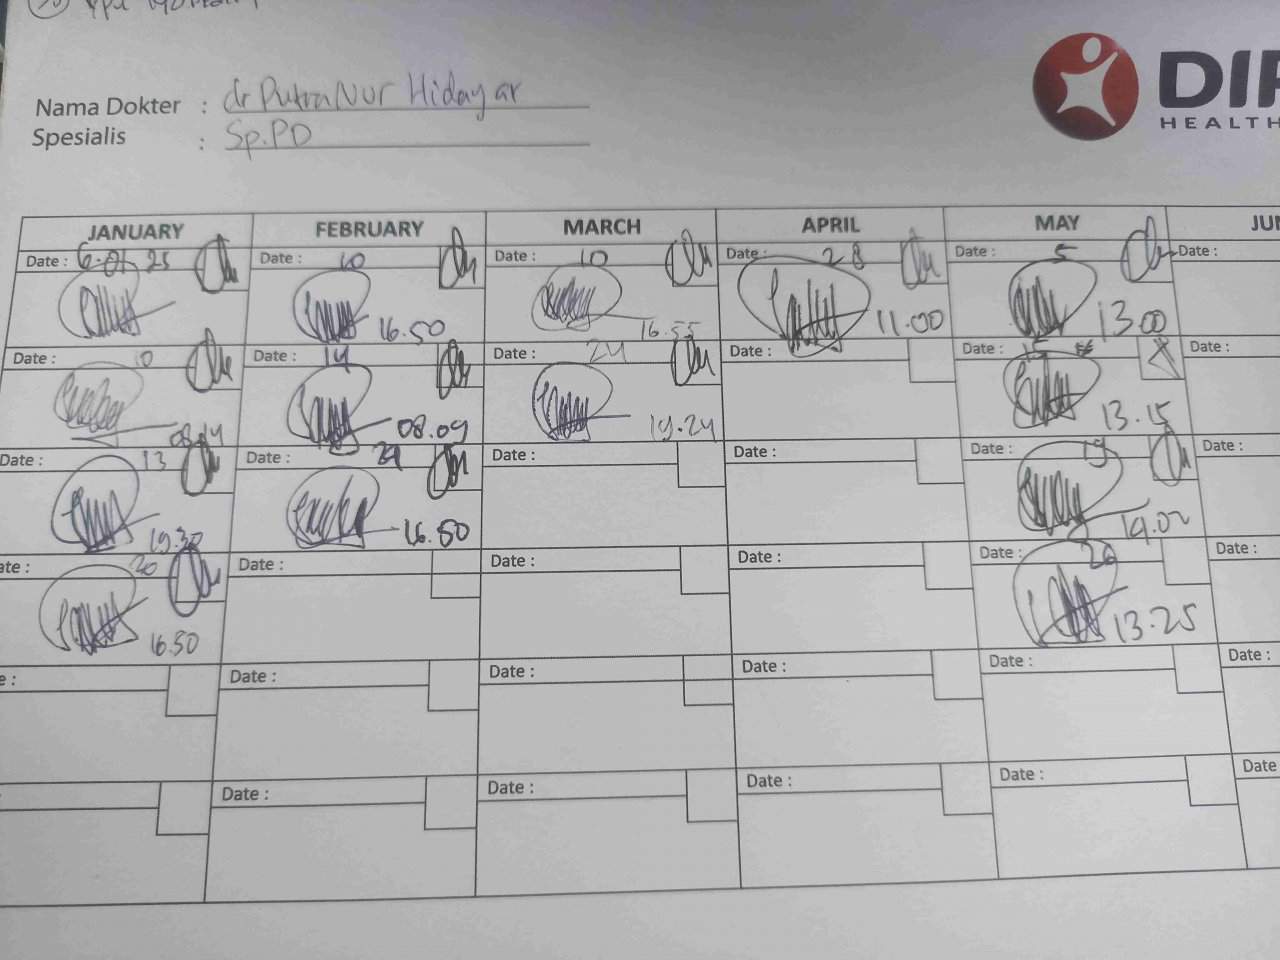 Nama Dokter : dr Putra Nur Hidayat
Spesialis : Sp.PD
DIP
HEALTH
JANUARY FEBRUARY MARCH APRIL MAY JU
Date : 6-01-25 Date : 10 Date : 10 Date : 28 Date : 5 Date :
16.50 16.55 11.00 13.00
Date : 10 Date : 14 Date : 24 Date : Date : 15 Date :
08.14 08.09 19.24 13.15
Date : 13 Date : Date : Date : Date : 19 Date :
19.30 16.50 19.02
ate : 20 Date : Date : Date : Date : 26 Date :
16.30 13.25
e : Date : Date : Date : Date : Date :
: Date : Date : Date : Date : Date